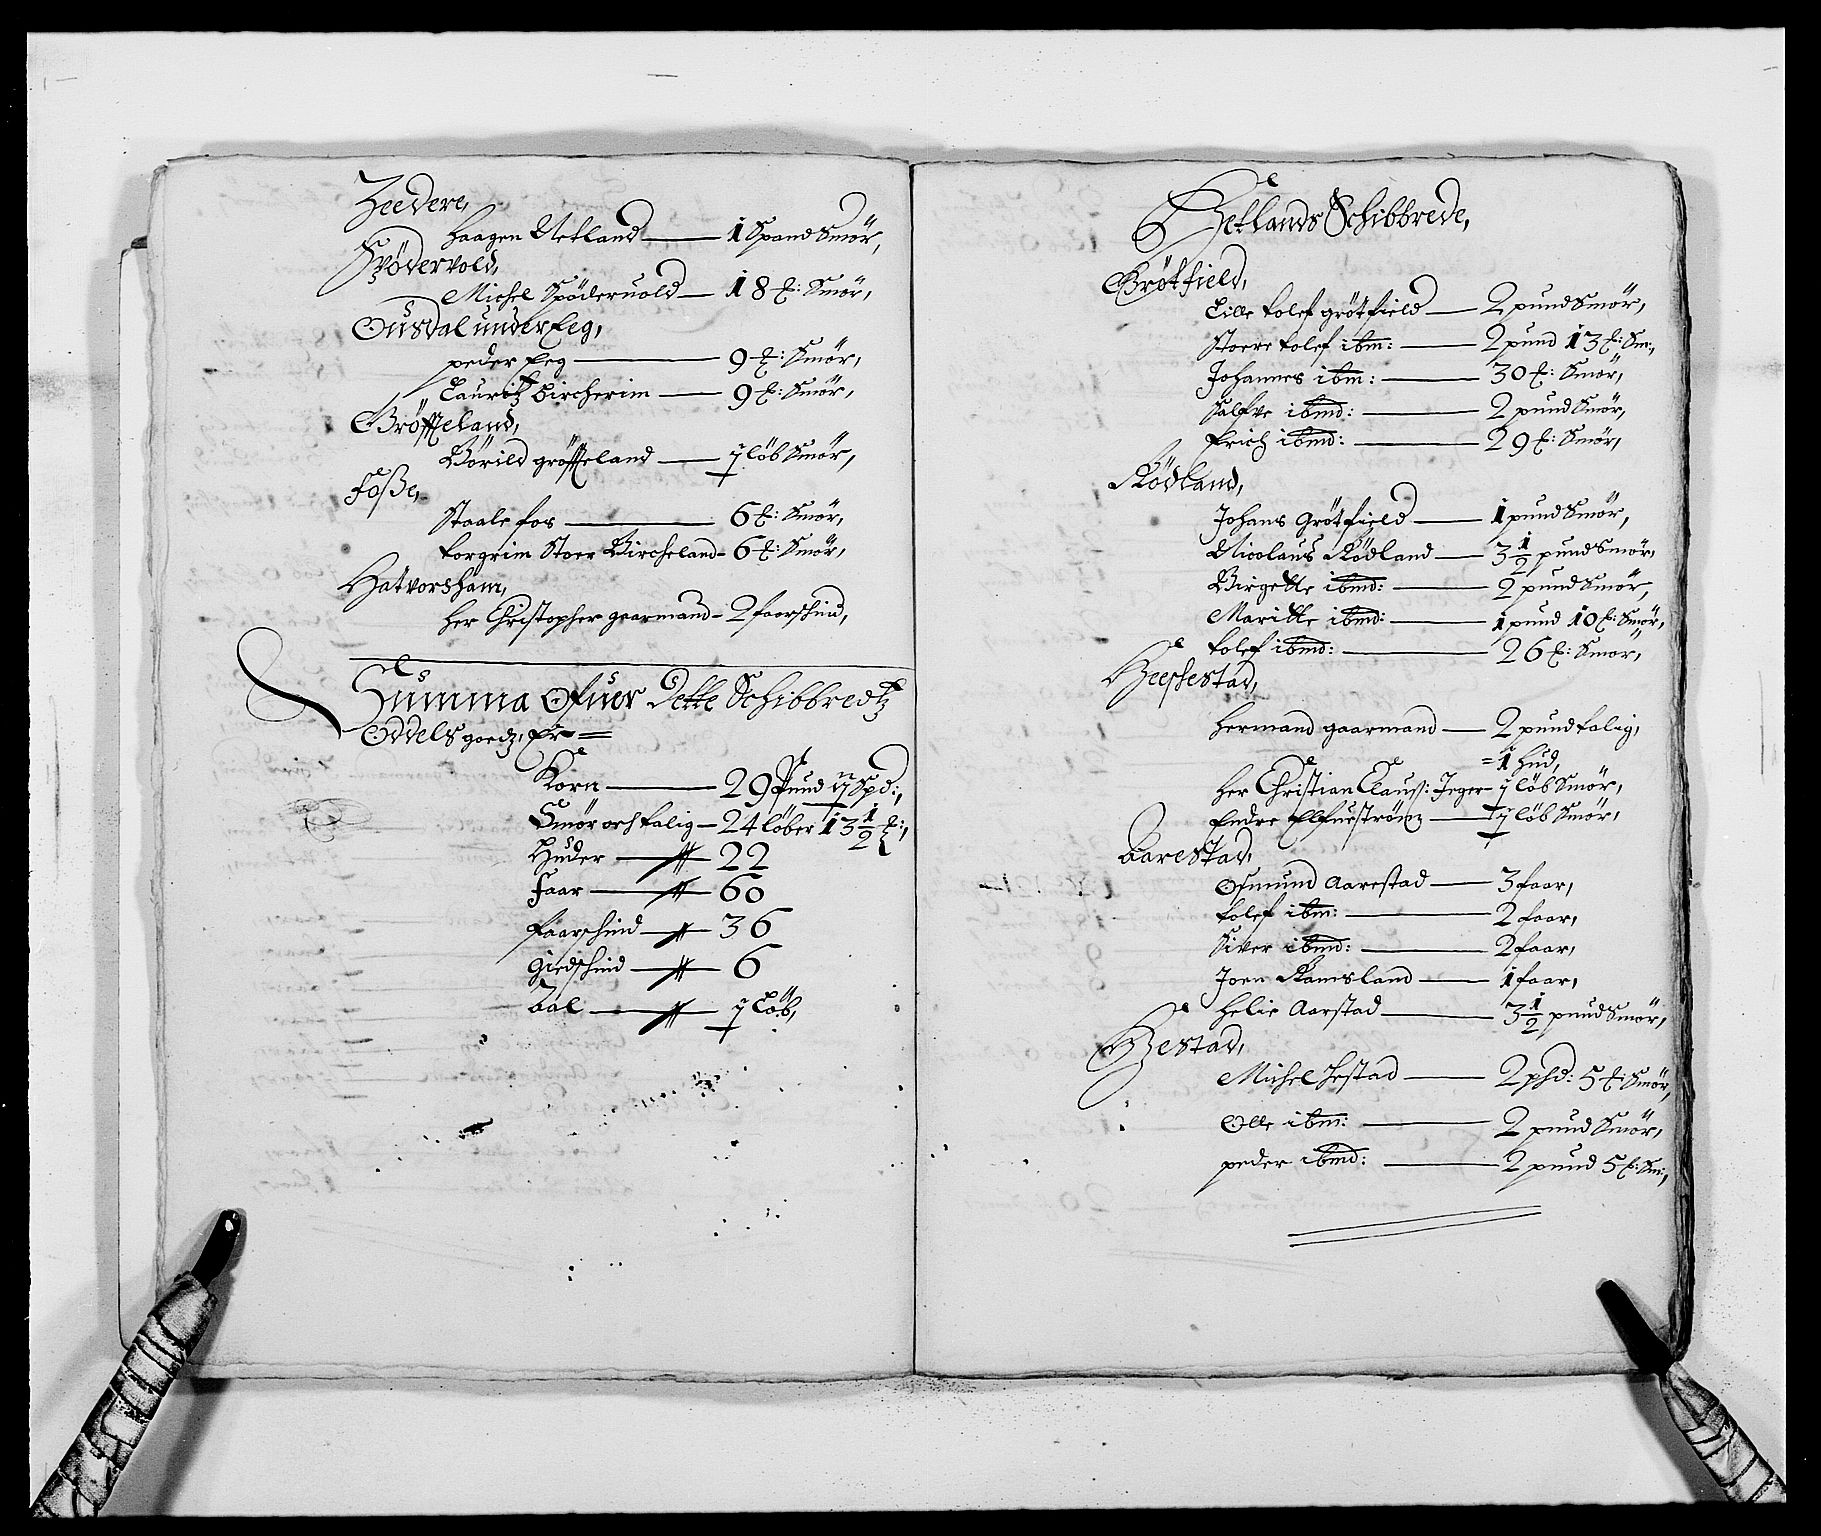 Leedere,
Haagen Netland — 1 Spand Smör,
Spödervold,
Michel Spöderuold — 18 ℔: Smör,
Ousdal under Eeg,
peder Eeg — 9 ℔: Smör,
Lauritz Bircherim — 9 ℔: Smör,
Gröffteland,
Börild gröffteland — ½ löb Smör,
Foße,
Staale fos — 6 ℔: Smör,
Torgrim Stoer Bircheland - 6 ℔: Smör,
Hatvorsham,
Her Christopher gaarmand - 2 faarschind,
Summa Ofuer Dette Schibbredtz
Oddels goedz, Er =
Korn — 29 Pund ½ Spd:,
Smör och talig — 24 löber 13½ ℔:,
Huder — 〃 — 22
Faar — 〃 — 60
Faarschind — 〃 — 36
Giedschind — 〃 — 6
Aal — 〃 — ½ Löb,
Hetlands Schibbrede,
Grötfield,
Lille tolef grötfield — 2 pund Smör,
Stoere tolef ibm: — 2 pund 13 ℔: Sm:,
Johannes ibm: — 30 ℔: Smör,
Salfve ibmd: — 2 pund Smör,
Erich ibmd: — 29 ℔: Smör,
Rödland,
Johans Grötfield — 1 pund Smör,
Nicolaus Rödland — 3½ pund Smör,
Birgette ibmd: — 2 pund Smör,
Maritte ibmd: — 1 pund 10 ℔: Smör,
tolef ibmd: — 26 ℔: Smör,
Heeskestad,
Hermand gaarmand — 2 pund talig,
= 1 Hud,
Her Christian Clauß: Jeger - ½ löb Smör,
Endre Elfueström — ½ löb Smör,
Aarestad,
Osmund Aarestad — 3 faar,
tolef ibm: — 2 faar,
Siver ibmd: — 2 faar,
Joen Ramsland — 1 faar,
Helie Aarstad — 3½ pund Smör,
Hestad,
Michel Hestad — 2 phd: 5 ℔: Smör,
Olle ibm: — 2 pund Smör,
peder ibmd: — 2 pund 5 ℔: Sm:,